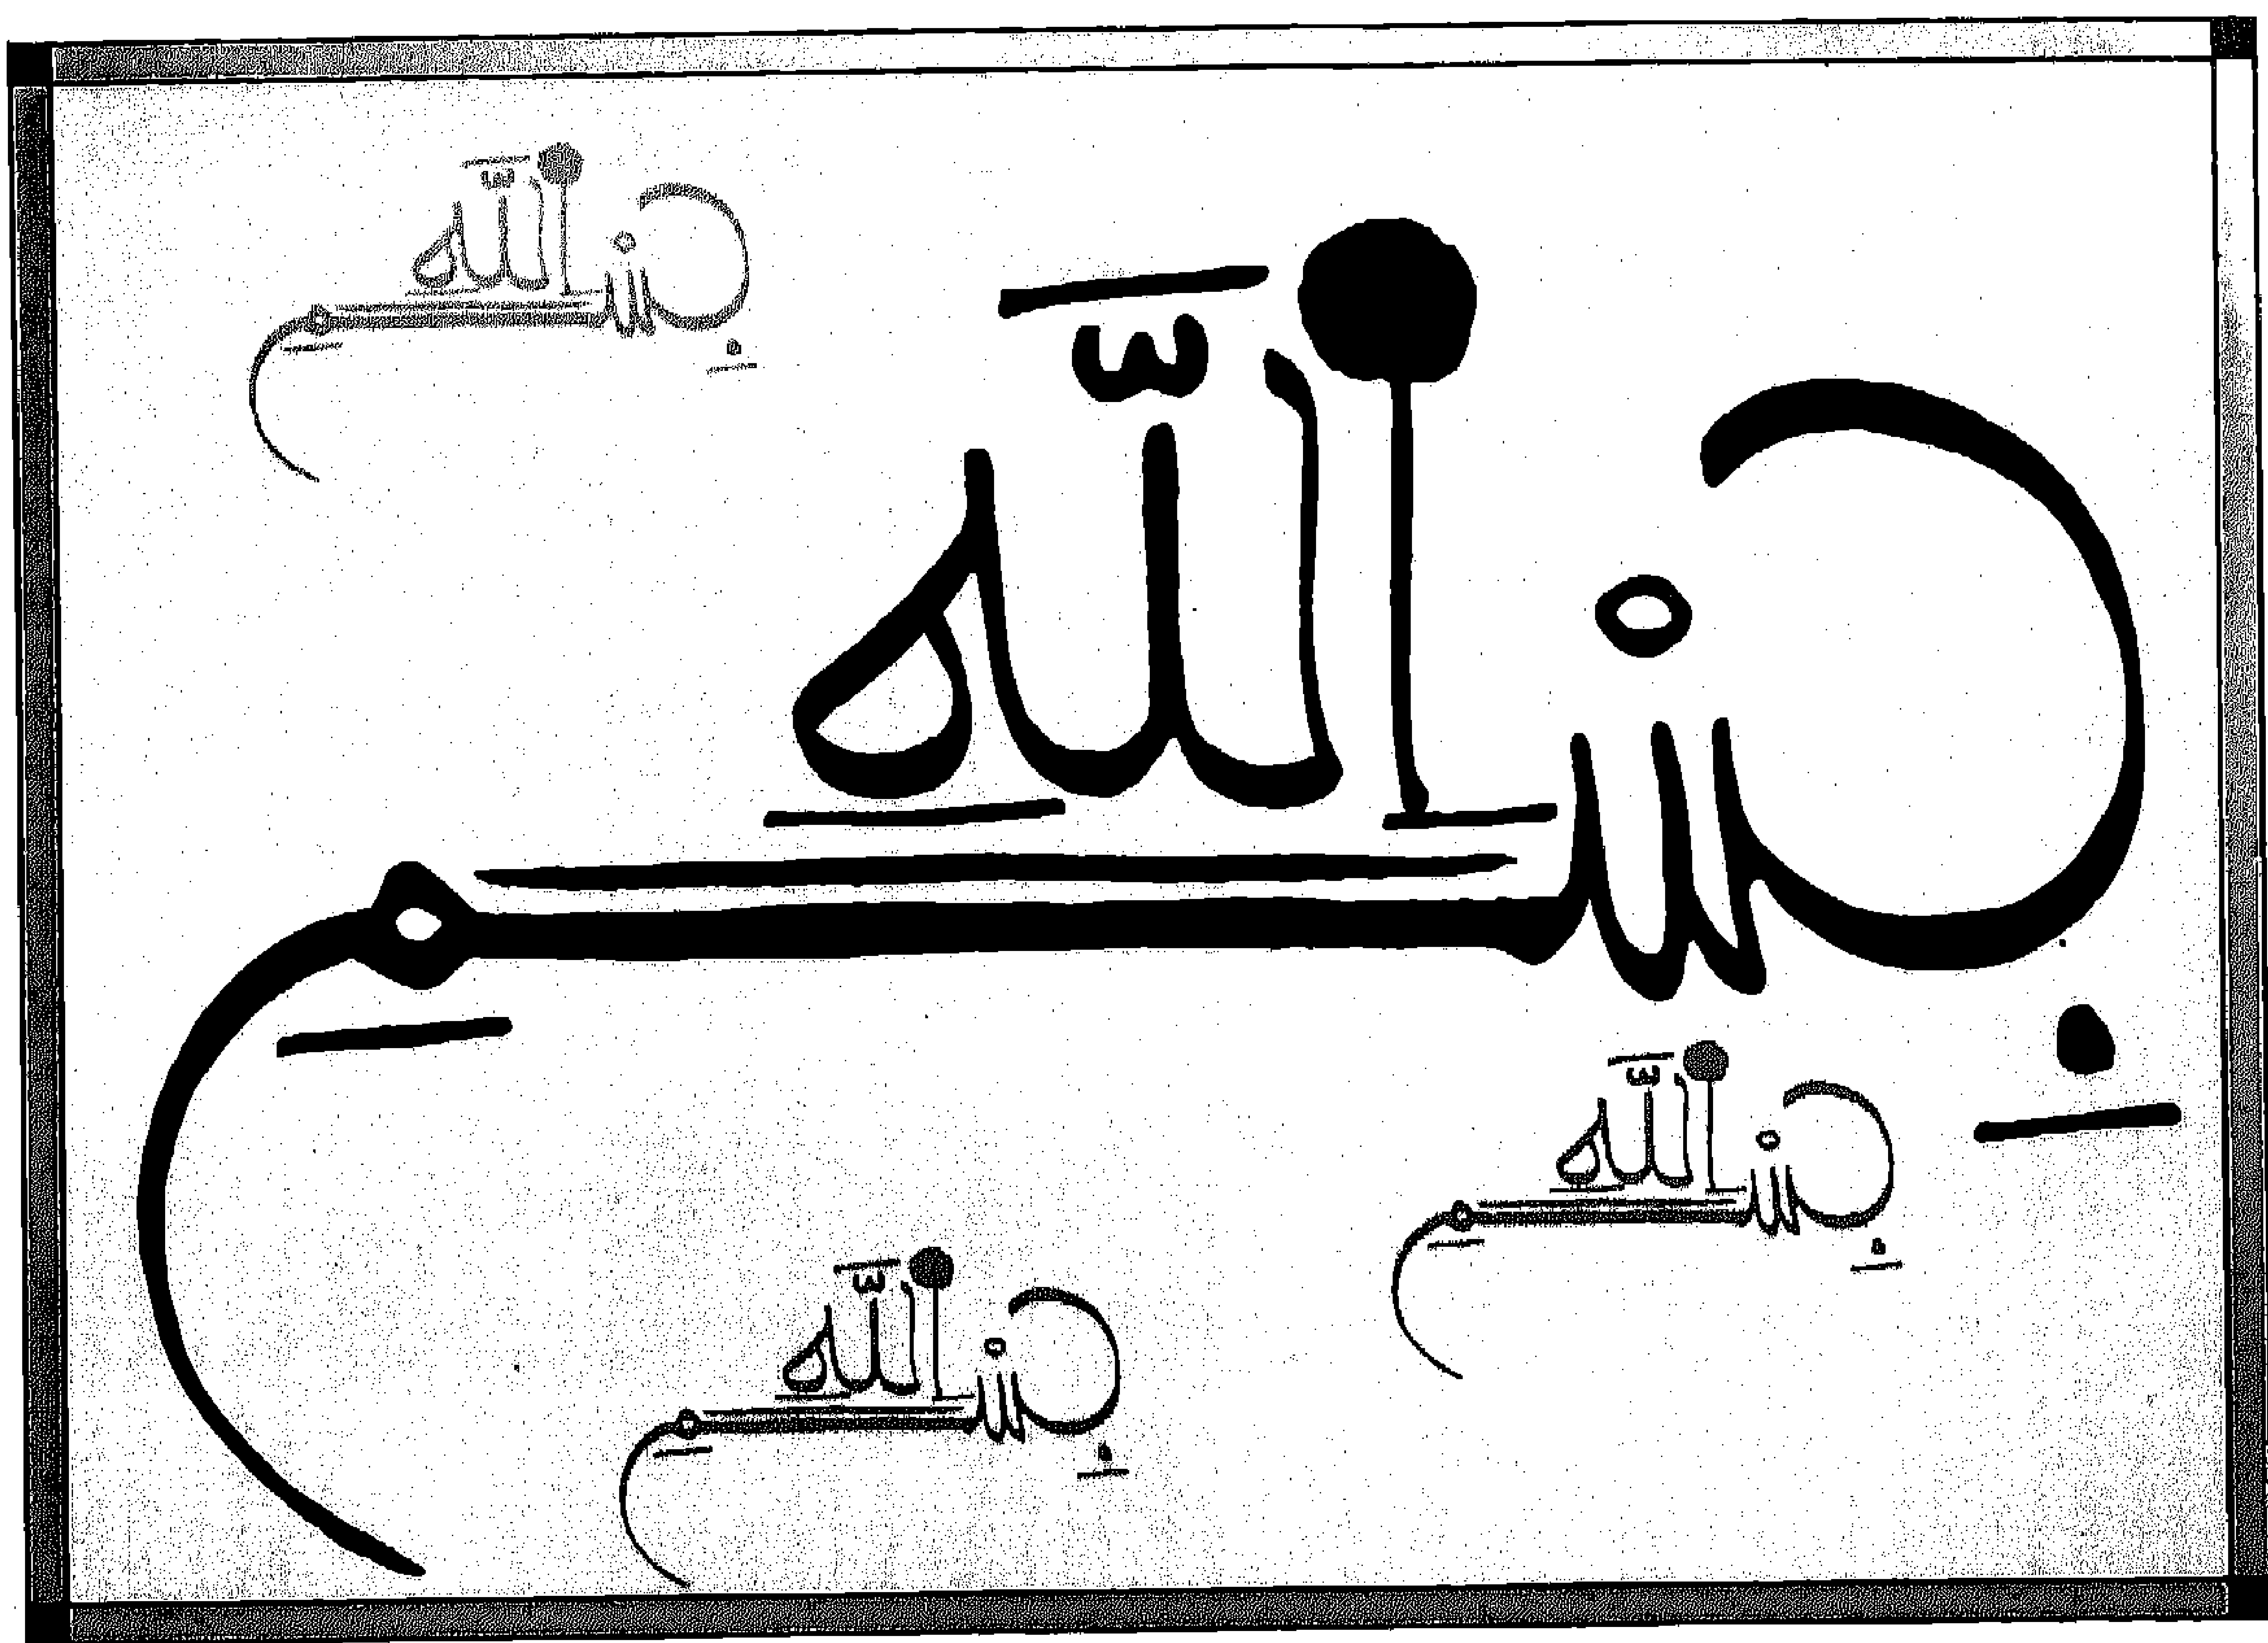 بِسْمِ اللّٰهِ
بِسْمِ اللّٰهِ
بِسْمِ اللّٰهِ
بِسْمِ اللّٰهِ